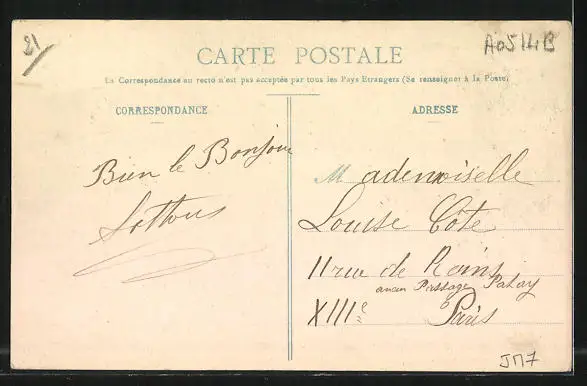 21
A0514B
CARTE POSTALE
La Correspondance au recto n'est pas acceptée par tous les Pays Etrangers (Se renseigner à la Poste)
CORRESPONDANCE
ADRESSE
Bien le Bonjour
Mademoiselle
Louise Côte
11 rue de Reims
ancien Passage Patay
XIIIe Paris
JM7